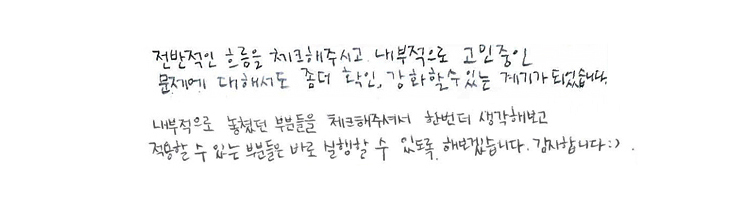 전반적인 흐름을 체크해주시고, 내부적으로 고민중인
문제에 대해서도 좀더 확인, 강화할 수 있는 계기가 되었습니다.
내부적으로 놓쳤던 부분들을 체크해주셔서 한번더 생각해보고
적용할 수 있는 부분들은 바로 실행할 수 있도록 해보겠습니다. 감사합니다:).